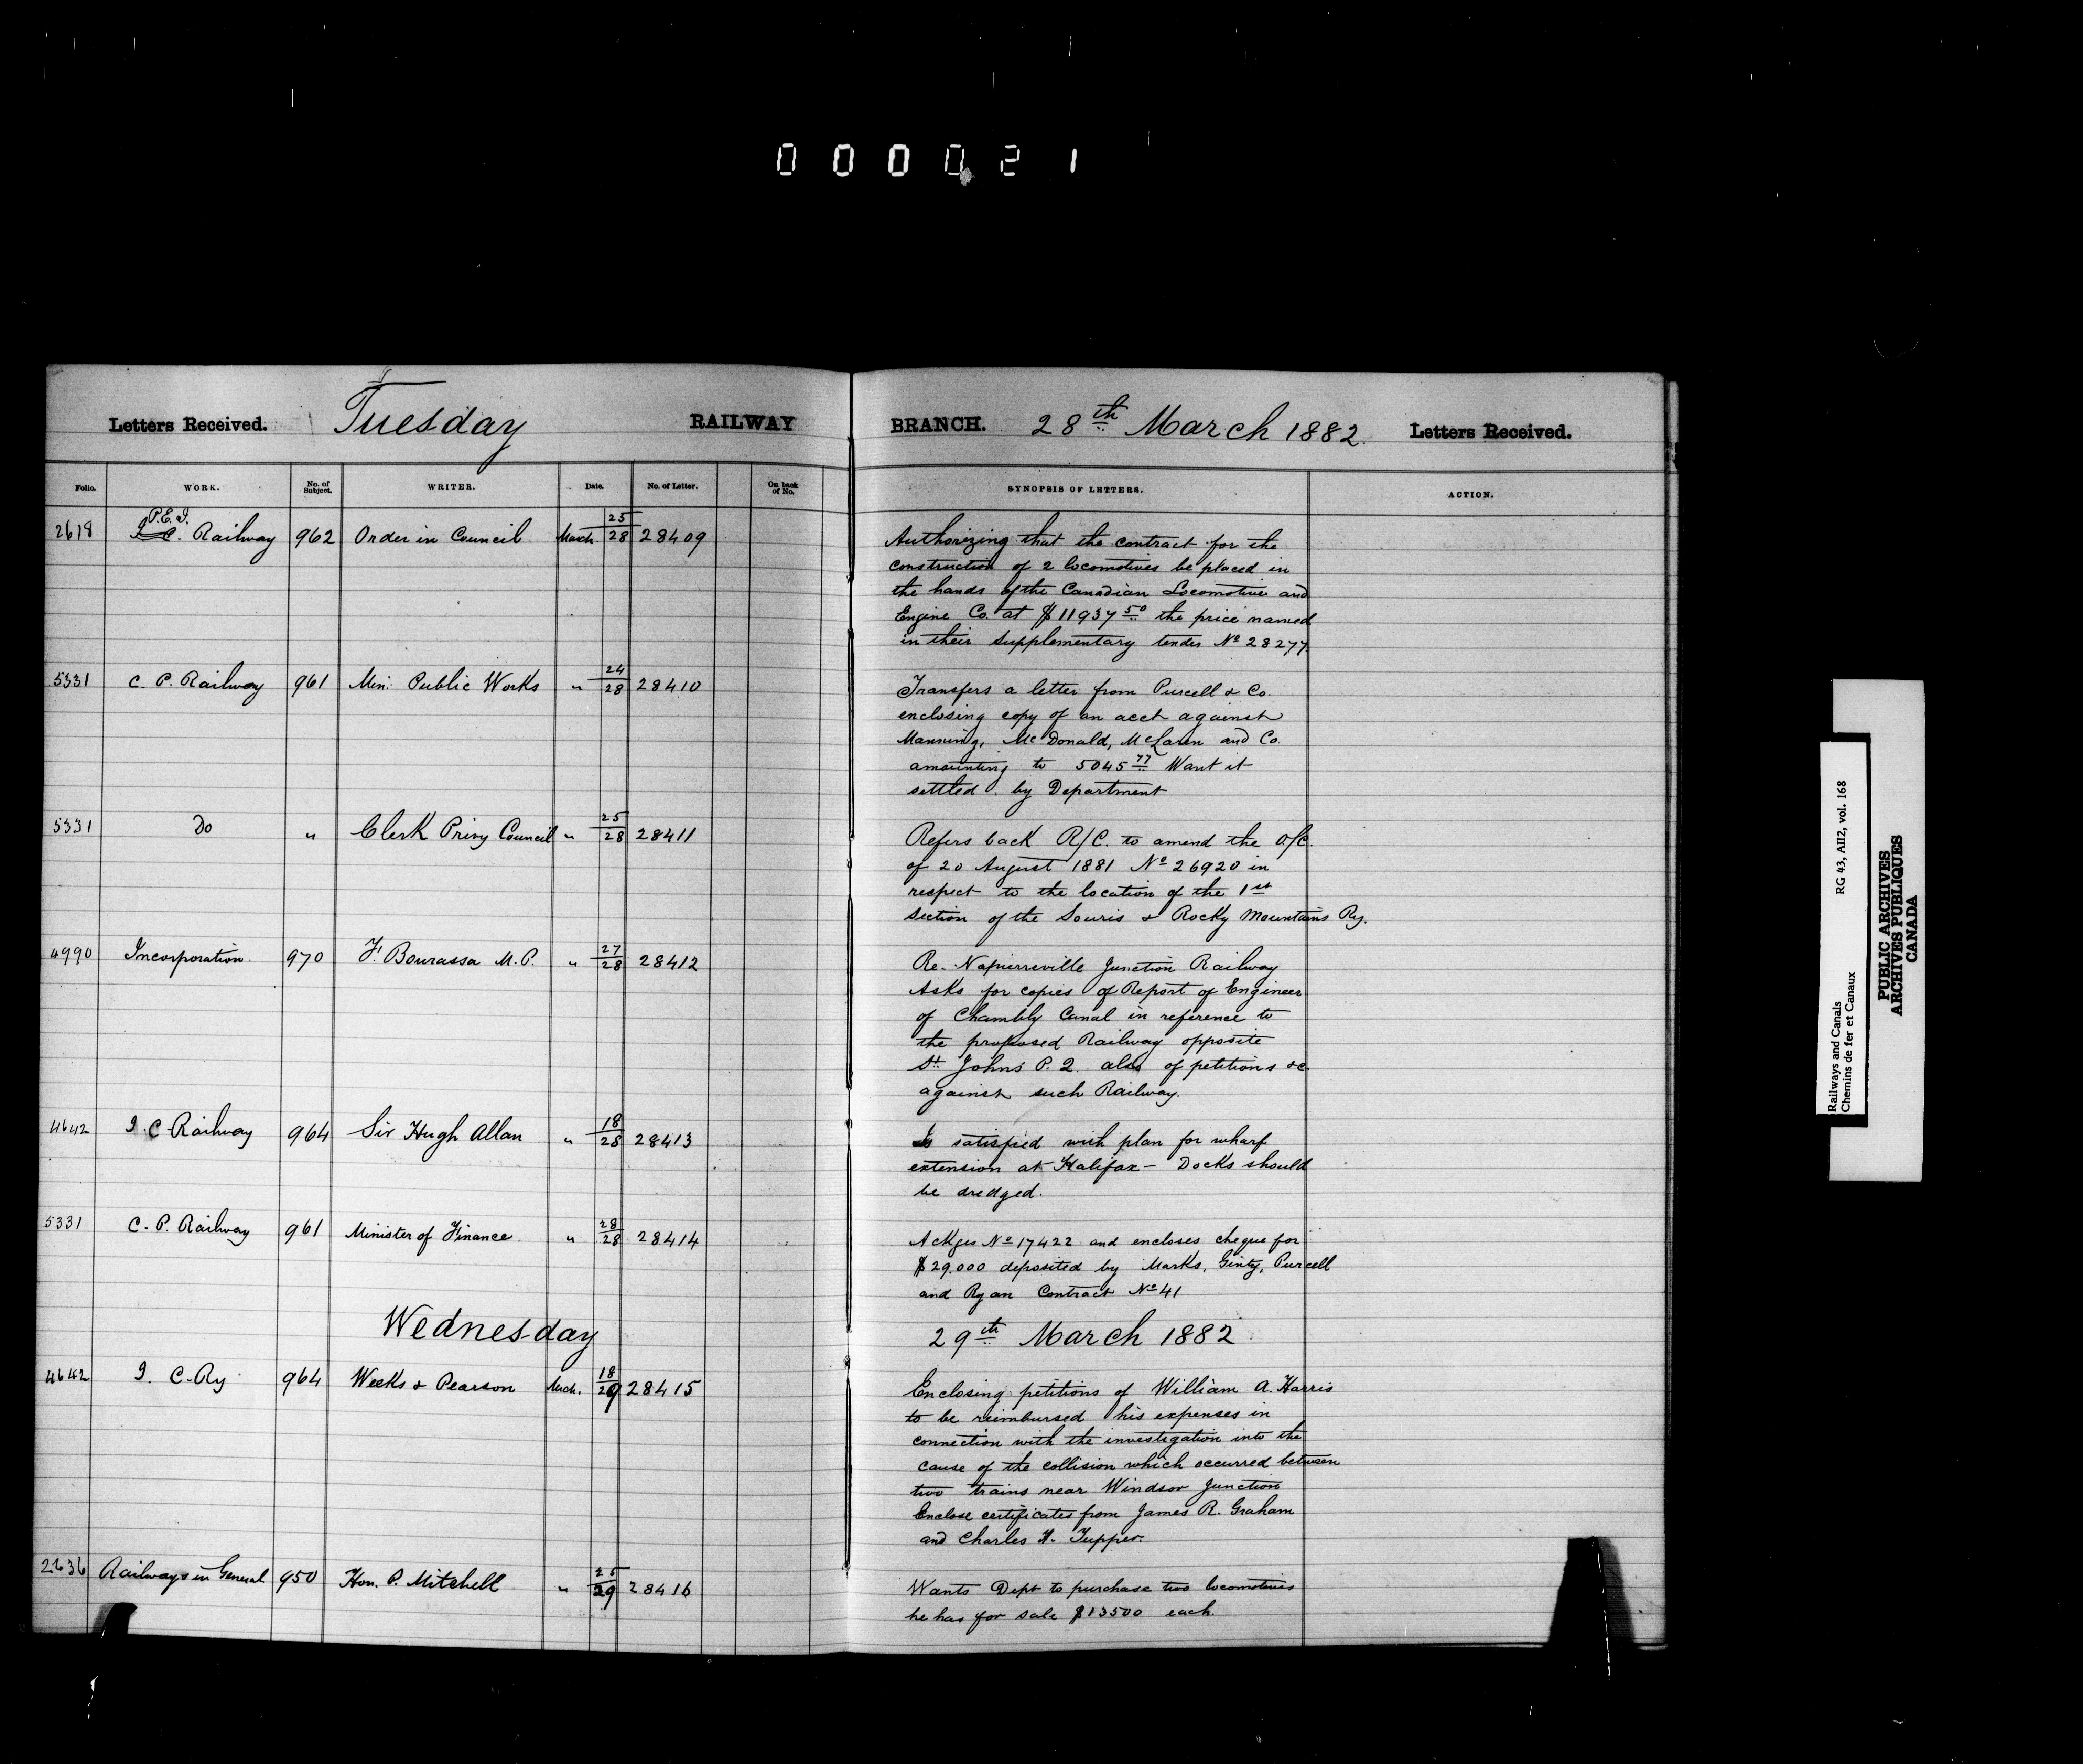 000021
Letters Received. Tuesday RAILWAY BRANCH. 28th March 1882. Letters Received.
Folio. WORK. No. of Subject. WRITER. Date. No. of Letter. On back of No. SYNOPSIS OF LETTERS. ACTION.
P.E.I.
2618 I. C. Railway 962 Order in Council March 25/28 28409
Authorizing that the contract for the
construction of 2 locomotives be placed in
the hands of the Canadian Locomotive and
Engine Co. at $11937 50 the price named
in their supplementary tender No 28277.
5331 C. P. Railway 961 Min: Public Works " 24/28 28410
Transfers a letter from Purcell & Co.
enclosing copy of an acct against
Manning, McDonald, McLaren and Co.
amounting to 5045 77 Want it
settled by Department
5331 Do " Clerk Privy Council " 25/28 28411
Refers back R/C. to amend the O/C.
of 20 August 1881 No 26920 in
respect to the location of the 1st
section of the Souris & Rocky Mountains Ry.
4990 Incorporation. 970 F. Bourassa M.P. " 27/28 28412
Re. Napierreville Junction Railway
Asks for copies of Report of Engineer
of Chambly Canal in reference to
the proposed Railway opposite
St. Johns P.Q. also of petitions &c
against such Railway.
4642 I. C Railway 964 Sir Hugh Allan " 18/28 28413
Is satisfied with plan for wharf
extension at Halifax - Docks should
be dredged.
5331 C. P. Railway 961 Minister of Finance. " 28/28 28414
Ackges No 17422 and encloses cheque for
$29.000 deposited by Marks, Ginty, Purcell
and Ryan Contract No 41
Wednesday 29th March 1882
4642 I. C. Ry 964 Weeks & Pearson Mch. 18/29 28415
Enclosing petitions of William A. Harris
to be reimbursed his expenses in
connection with the investigation into the
cause of the collision which occurred between
two trains near Windsor Junction
Enclose certificates from James R. Graham
and Charles H. Tupper.
2636 Railways in General 950 Hon. P. Mitchell " 25/29 28416
Wants Dept to purchase two locomotives
he has for sale $13500 each.
Railways and Canals RG 43, AII2, vol. 168
Chemins de fer et Canaux
PUBLIC ARCHIVES
ARCHIVES PUBLIQUES
CANADA